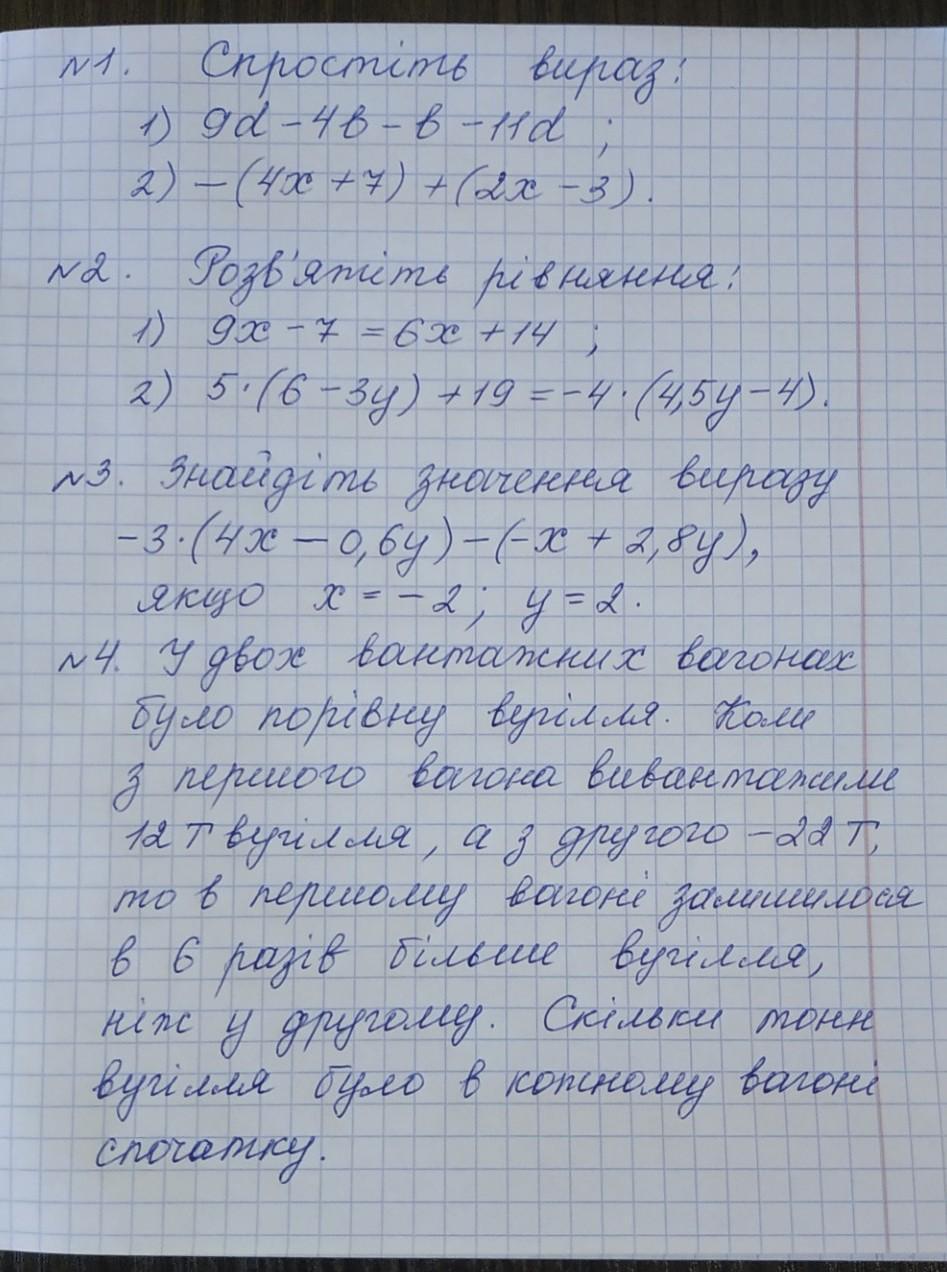 №1. Спростіть вираз:
1) 9d - 4b - b - 11d ;
2) -(4x + 7) + (2x - 3).
№2. Розв'яжіть рівняння:
1) 9x - 7 = 6x + 14 ;
2) 5·(6 - 3y) + 19 = -4·(4,5y - 4).
№3. Знайдіть значення виразу
-3·(4x - 0,6y) - (-x + 2,8y),
якщо x = -2; y = 2.
№4. У двох вантажних вагонах
було порівну вугілля. Коли
з першого вагона вивантажили
12 т вугілля, а з другого - 22 т,
то в першому вагоні залишилося
в 6 разів більше вугілля,
ніж у другому. Скільки тонн
вугілля було в кожному вагоні
спочатку.